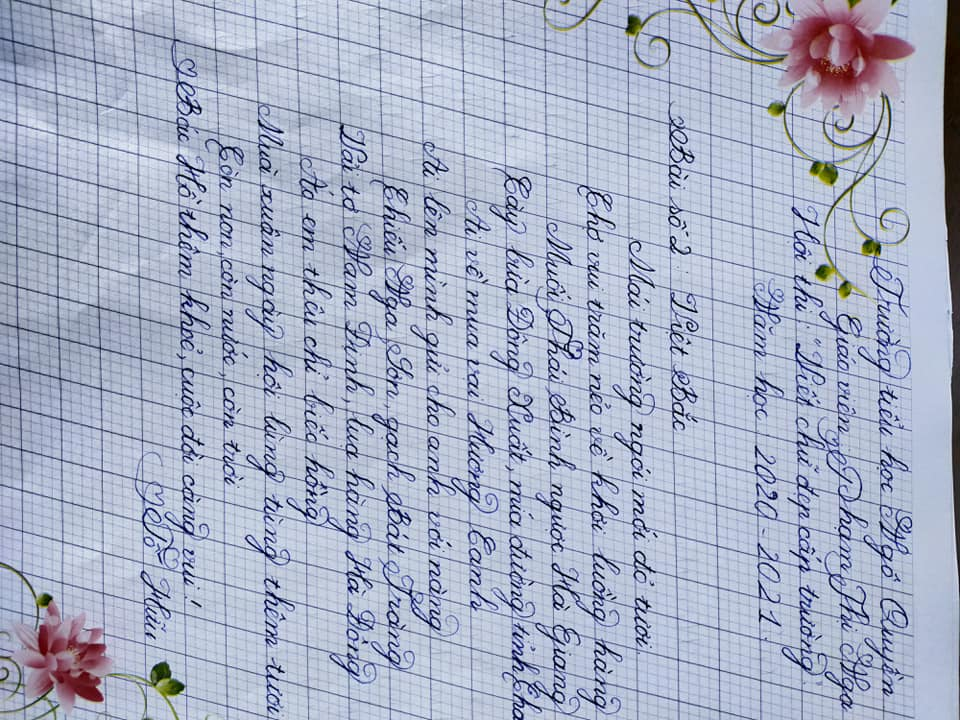 Trường tiểu học Ngô Quyền
Giáo viên: Phạm Thị Nga
Hội thi: "Viết chữ đẹp cấp trường"
Năm học 2020 - 2021.
Bài số 2: Việt Bắc
Mái trường ngói mới đỏ tươi.
Chợ vui trăm nẻo về khơi luồng hàng
Muối Thái Bình ngược Hà Giang
Cày bừa Đông Xuất, mía đường tỉnh Tha
Ai về mua vại Hương Canh
Ai lên mình gửi cho anh với nàng
Chiếu Nga Sơn, gạch Bát Tràng
Vải tơ Nam Định, lụa hàng Hà Đông
Áo em thêu chỉ biếc hồng
Mùa xuân ngày hội lùng tùng thêm tươi
Còn non, còn nước, còn trời
Bác Hồ thêm khoẻ, cuộc đời càng vui!
Tố Hữu